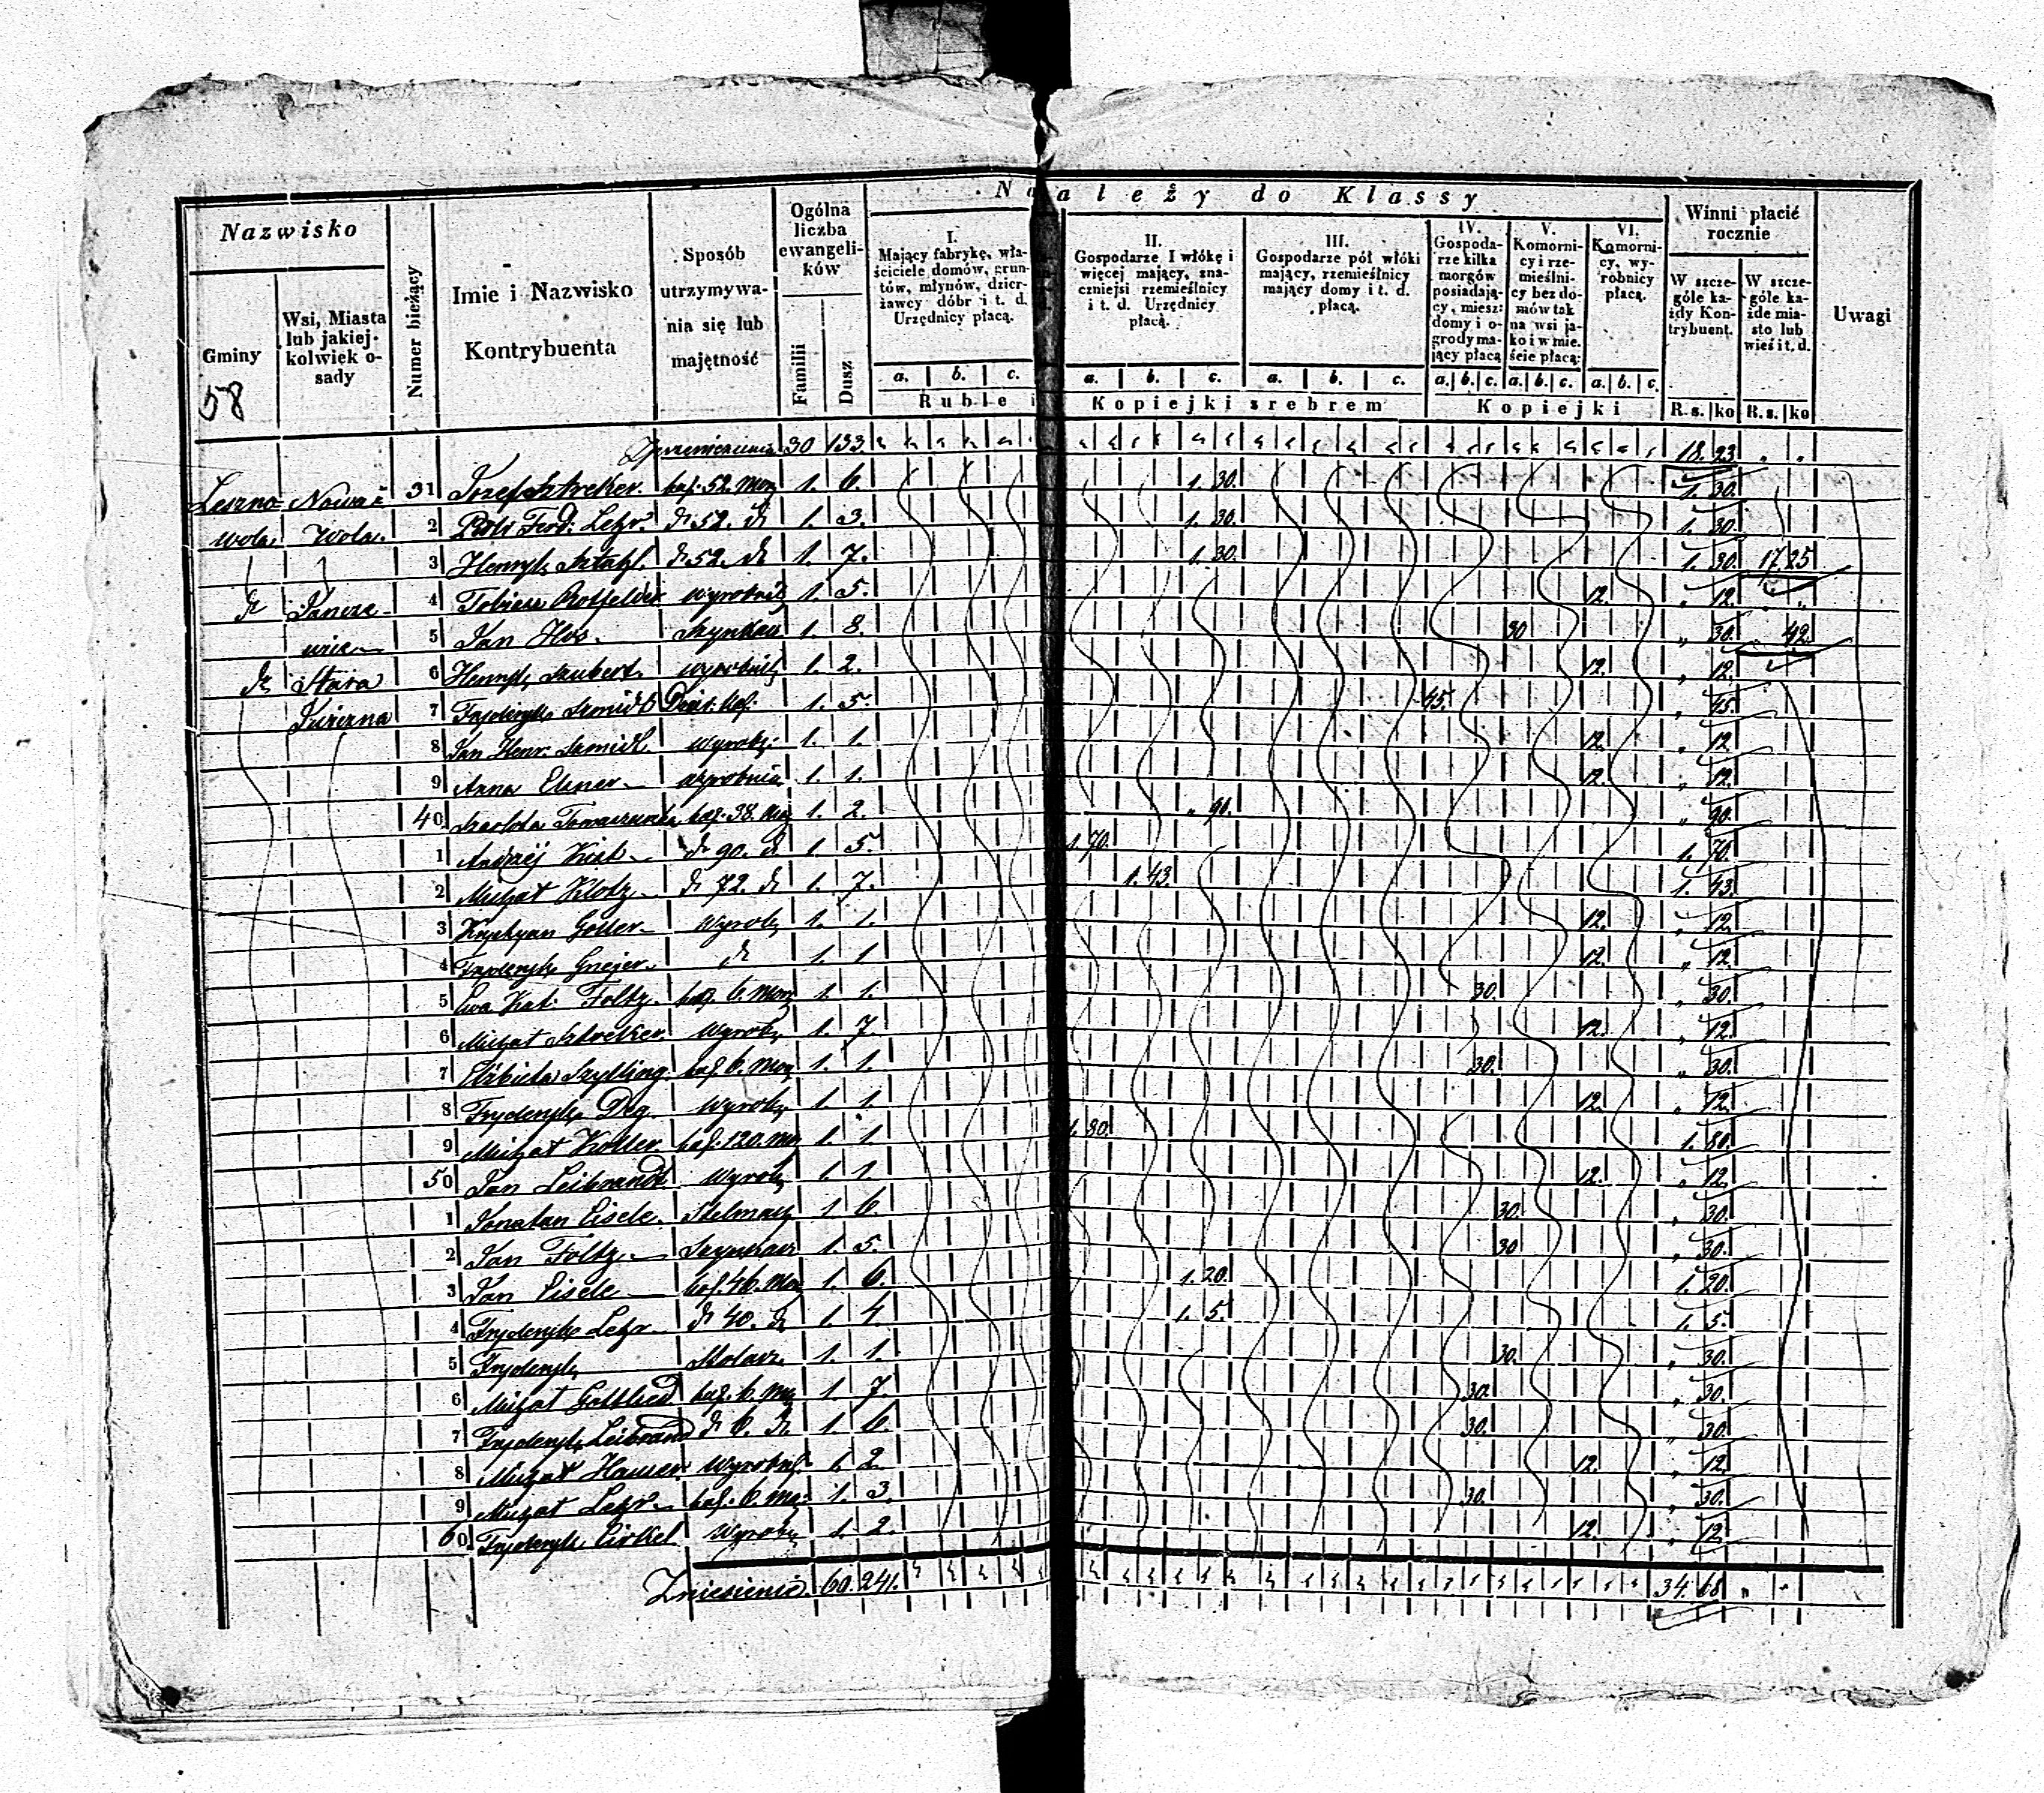 Należy do Klassy
Nazwisko
Gminy
58
Wsi, Miasta lub jakiejkolwiek osady
Numer bieżący
Imie i Nazwisko Kontrybuenta
Sposób utrzymywania się lub majętność
Ogólna liczba ewangelików
Familii
Dusz
I. Mający fabrykę, właściciele domów, gruntów, młynów, dzierżawcy dóbr i t. d. Urzędnicy płacą.
II. Gospodarze I włókę i więcej mający, znaczniejsi rzemieślnicy i t. d. Urzędnicy płacą.
III. Gospodarze pół włóki mający, rzemieślnicy mający domy i t. d. płacą.
IV. Gospodarze kilka morgów posiadający, miesz: domy i ogrody mający płacą
V. Komornicy i rzemieślnicy bez domów tak na wsi jako i w mieście płacą:
VI. Komornicy, wyrobnicy płacą.
Winni płacić rocznie
W szczególe każdy Kontrybuent.
W szczególe każde miasto lub wieś i t. d.
Uwagi
a. b. c. a. b. c. a. b. c. a. b. c. a. b. c. a. b. c.
Ruble i Kopiejki srebrem Kopiejki R.s. ko R.s. ko
30 133 18. 23
Leszno- Nowa 31 Jozef Sztreker 52. Mor 1. 6. 1. 30. 1. 30.
wola. Wola. 2 Ferd: Lehr. 52. 1. 3. 1. 30. 1. 30.
3 Henryk 52. 1. 7. 1. 30. 1. 30. 17. 25
4 Tobiasz wyrobnik 1. 5. 12. 12.
5 Jan Szynkarz 1. 8. 30 30. 42.
Stara 6 Henryk Szubert wyrobnik 1. 2. 12. 12.
7 Fryderyk Szmidt 1. 5. 45. 45.
8 Jan Henr. Szmidt wyrob: 1. 1. 12. 12
9 Anna Elsner wyrobnica 1. 1. 12. 12.
40. Szarlota 38. Mor 1. 2. 90. 90.
1 Andrzej 90. 1. 5. 1. 70. 1. 70.
2 Michał Klotz 72. 1. 7. 1. 43. 1. 43.
3 Krystyan Wyrob 1. 1. 12. 12.
4 Fryderyk 1. 1 12. 12.
5 Ewa Kat: Foltz 6. Mor 1. 1. 30. 30.
6 Michał Sztreker Wyrob 1. 7. 12. 12.
7 Elżbieta Szylling 6. Mor 1. 1. 30. 30.
8 Fryderyk Deg Wyrob 1. 1. 12. 12.
9 Michał 120. Mor 1. 1. 1. 80. 1. 80.
50 Jan Leibrandt Wyrob 1. 1. 12. 12
1 Jonatan Eisele Stelmach 1. 6. 30. 30.
2 Jan Foltz Szynkarz 1. 5. 30 30.
3 Jan Eisele 46. Mor 1. 6. 1. 20. 1. 20.
4 Fryderyk Lehr 40. 1. 4. 1. 5. 1. 5.
5 Fryderyk Stolarz 1. 1. 30. 30.
6 Michał Gottlieb 6. Mor 1. 7. 30. 30.
7 Fryderyk Leibrand 6. 1. 6. 30. 30.
8 Michał Wyrobnik 1. 2. 12. 12.
9 Michał Lehr 6. Mor 1. 3. 30. 30.
60 Fryderyk Wyrob 1. 2. 12. 12.
Zniesienie. 60. 241. 34 68